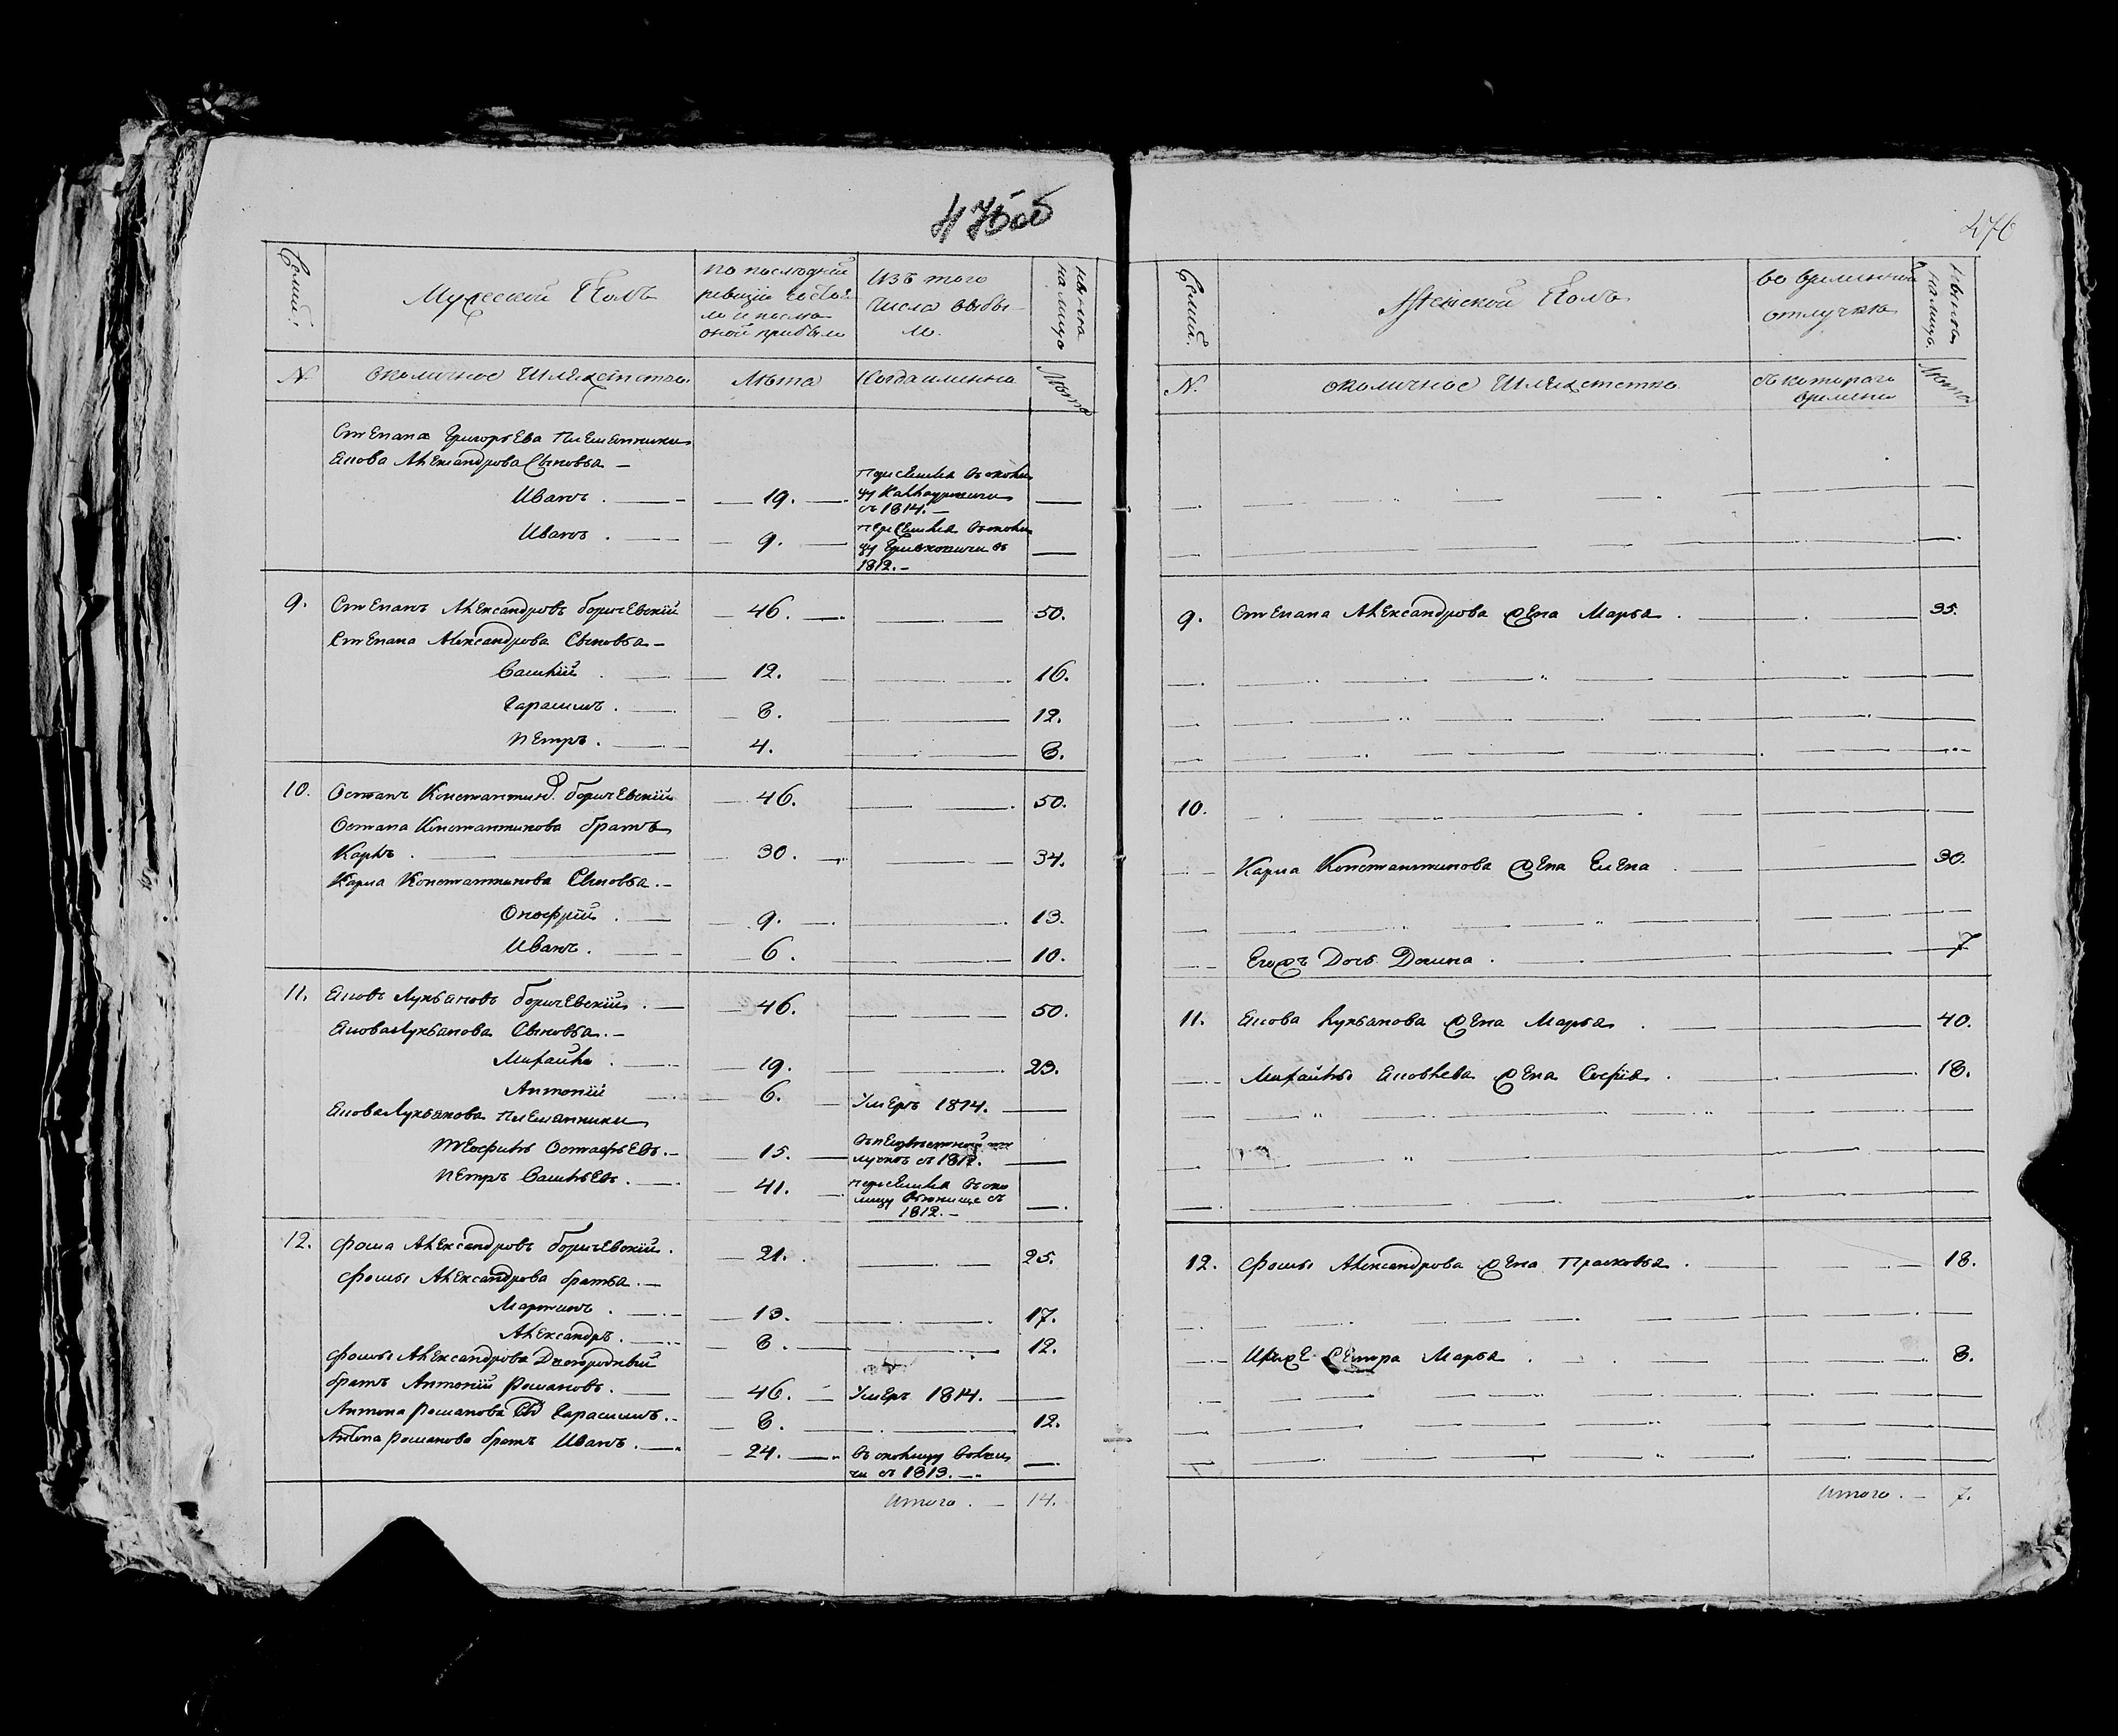 475об
Семьи.
Мужеской Полъ
по последней
ревизіи состоя
ло и после
оной прибыло
Изъ того
числа выбы-
ло.
ныне на
на лицо
№
околичное Шляхетство
Лета
Когда именно
Лета
Степана Григорьева племянники
Якова Александрова Сыновья —
Иванъ . — 19. — переселился въ околи
цу
съ 1814. —
Иванъ . — 9. — переселился въ околи
цу въ
1812. —
9. Степанъ Александровъ Боричевскій — 46. — 50.
Степана Александрова Сыновья —
Василій . — 12. — 16.
Гарасимъ . — 8. — 12.
Петръ . — 4. — 8.
10. Остапъ Константинов. Боричевскій — 46. — 50.
Остапа Константинова братъ
Карпъ . — 30. — 34.
Карпа Константинова Сыновья . —
Онофрій . — 9. — 13.
Иванъ . — 6. — 10.
11. Яковъ Лукьяновъ Боричевскій . — 46. — 50.
Якова Лукьянова Сыновья . —
Михайло . — 19. — 23.
Антоній — 6. — Умеръ 1814. —
Якова Лукьянова племянники
Теофилъ Остафьевъ . — 15. — въ неизвестной от
лучке съ 1812. —
Петръ Васильевъ . — 41. — переселился въ око
лицу съ
1812. —
12. Фома Александровъ Боричевскій . — 21. — 25.
Фомы Александрова братья . —
Мартинъ . — 13. — 17.
Александръ . — 8. — 12.
Фомы Александрова Двоюродный
братъ Антоній Романовъ . — 46. — Умеръ 1814. —
Антона Романова Сынъ Гарасимъ . — 8. — 12.
Антона Романова братъ Иванъ . — 24. — въ околицу
съ 1813. —
Итого . — 14.
476
Семьи.
Женской Полъ
во временной
отлучке
ныне на
на лицо.
№.
околичное Шляхетство
съ котораго
времени
Лета
9. Степана Александрова жена Марья . — 35.
10.
Карпа Константинова жена Елена — 30.
Егожъ Дочь Домна . — 7
11. Якова Лукьянова жена Марья . — 40.
Михайлы Яковлева жена Софія . — 18.
12. Фомы Александрова жена Прасковья . — 18.
Ихже Сестра Марья . — 8.
Итого . — 7.